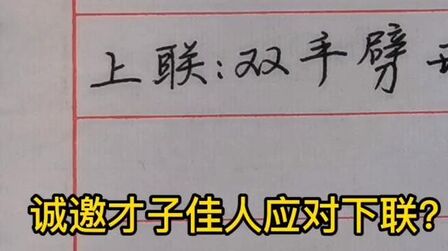 上联:双手劈
诚邀才子佳人应对下联?